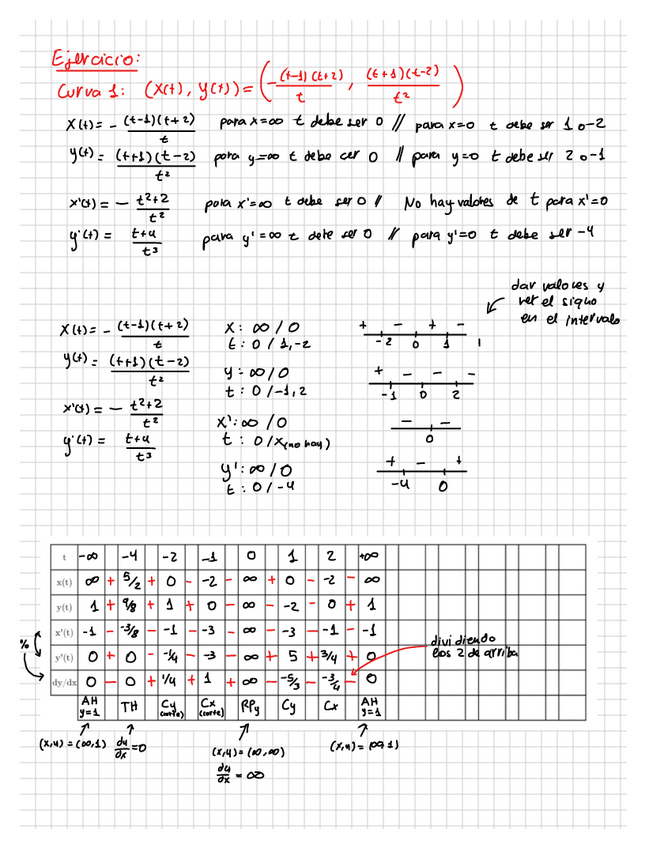 Ejercicio:
Curva 1: (x(t), y(t)) = ( -(t-1)(t+2)/t , (t+1)(t-2)/t² )
x(t) = - (t-1)(t+2)/t para x=∞ t debe ser 0 // para x=0 t debe ser 1 o -2
y(t) = (t+1)(t-2)/t² para y=∞ t debe ser 0 // para y=0 t debe ser 2 o -1
x'(t) = - t²+2/t² para x'=∞ t debe ser 0 // No hay valores de t para x'=0
y'(t) = t+4/t³ para y'=∞ t debe ser 0 // para y'=0 t debe ser -4
dar valores y
ver el signo
en el intervalo
x(t) = - (t-1)(t+2)/t x: ∞/0 + - + -
t: 0/1,-2 -2 0 1
y(t) = (t+1)(t-2)/t² y: ∞/0 + - - -
t: 0/-1,2 -1 0 2
x'(t) = - t²+2/t² x': ∞/0 - -
t: 0/x(no hay) 0
y'(t) = t+4/t³ y': ∞/0 + - +
t: 0/-4 -4 0
t -∞ -4 -2 -1 0 1 2 +∞
x(t) ∞ + 5/2 + 0 - -2 - ∞ + 0 - -2 - ∞
y(t) 1 + 9/8 + 1 + 0 - ∞ - -2 - 0 + 1
x'(t) -1 - -3/8 - -1 - -3 - ∞ - -3 - -1 - -1
y'(t) 0 + 0 - -1/4 - -3 - ∞ + 5 + 3/4 + 0
dy/dx 0 - 0 + 1/4 + 1 + ∞ - -5/3 - -3/4 - 0
%
dividiendo
los 2 de arriba
AH y=1 TH Cy (corte) Cx (corte) RPy Cy Cx AH y=1
(x,y) = (∞,1) dy/dx = 0 (x,y) = (∞,∞) (x,y) = (∞,1)
dy/dx = ∞